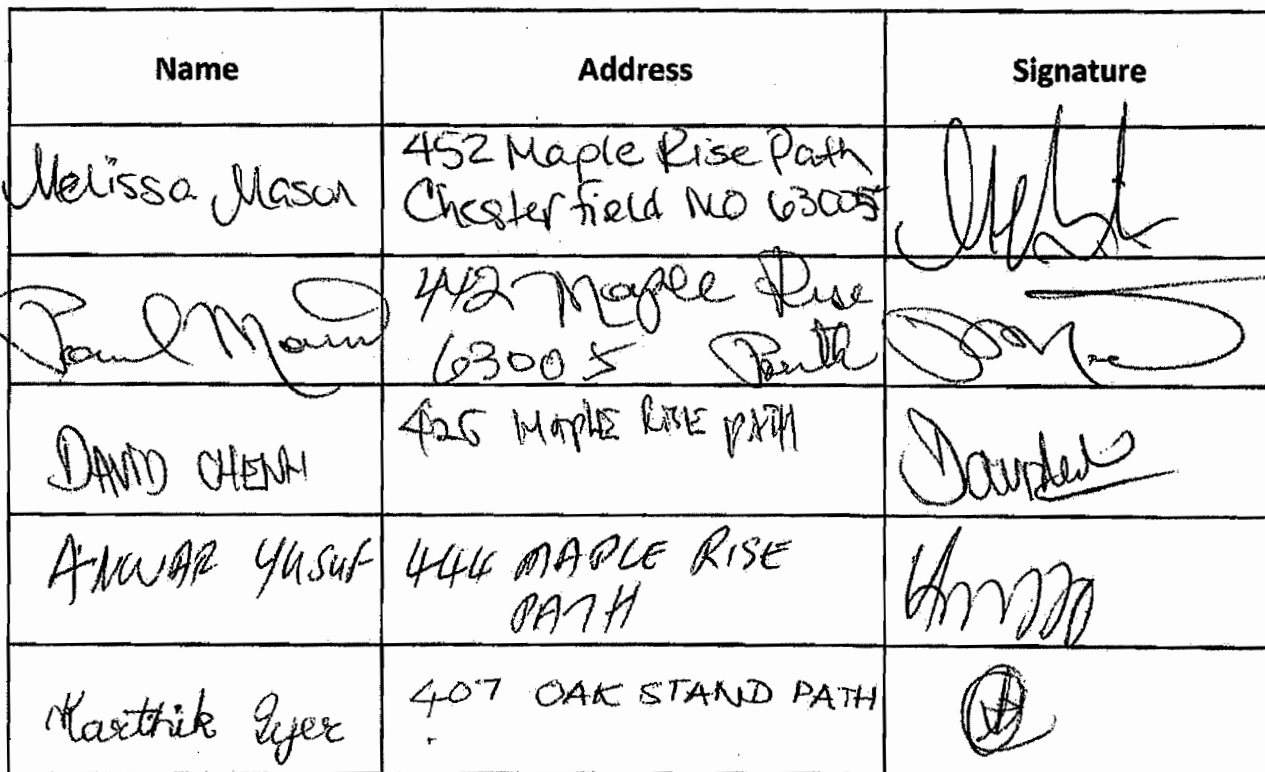 Name Address Signature
Melissa Mason
452 Maple Rise Path
Chesterfield MO 63005
Paul
442 Maple Rise
63005 Path
DAVID CHENH
425 MAPLE RISE PATH
ANWAR YUSUF
444 MAPLE RISE
PATH
Karthik Iyer
407 OAK STAND PATH